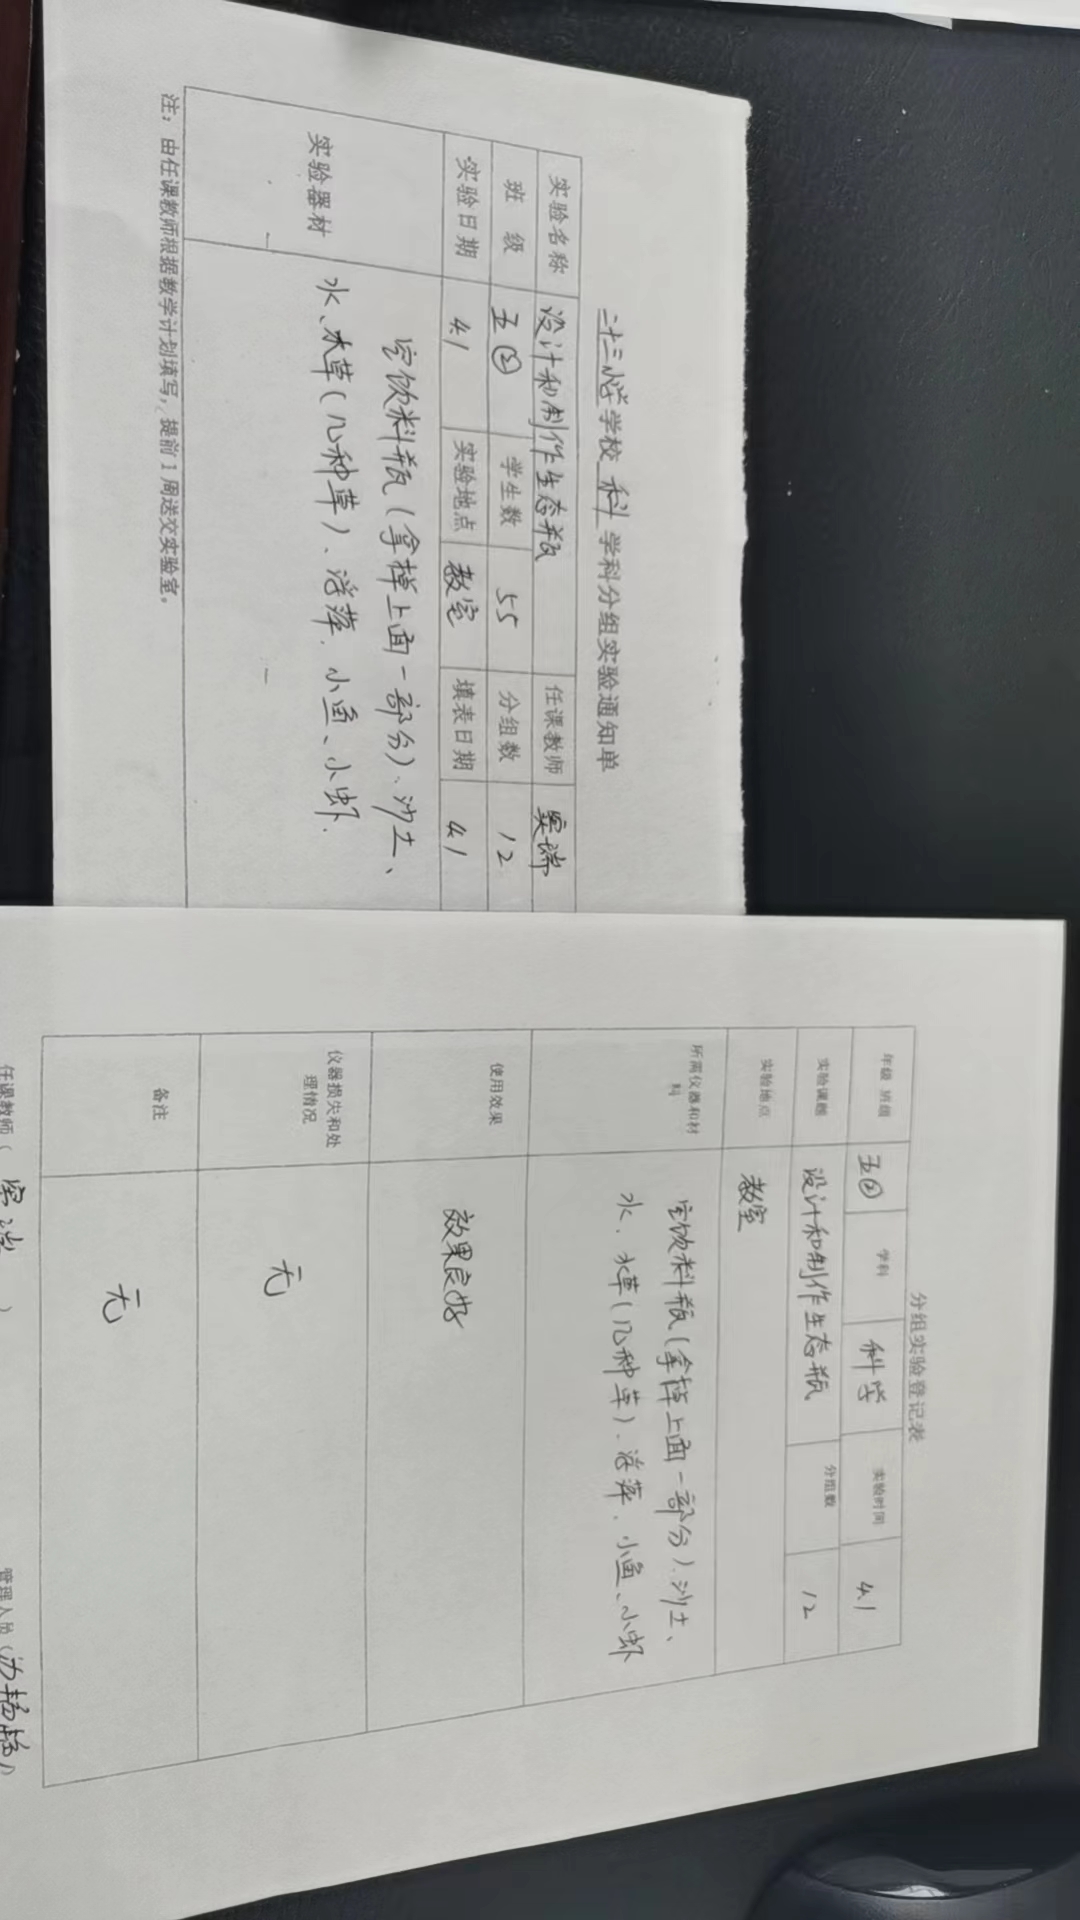 二十三小学学校 科 学科分组实验通知单
实验名称 设计和制作生态瓶 任课教师
班 级 五② 学生数 55 分组数 12
实验日期 4.1 实验地点 教室 填表日期 4.1
实验器材 空饮料瓶(拿掉上面一部分)、沙土、
水、水草(几种草)、浮萍、小鱼、小虾.
注：由任课教师根据教学计划填写，提前1周送交实验室。
分组实验登记表
年级 班级 五② 学科 科学 实验时间 4.1
实验课题 设计和制作生态瓶 分组数 12
实验地点 教室
所需仪器和材
料
空饮料瓶(拿掉上面一部分)、沙土、
水、水草(几种草)、浮萍、小鱼、小虾
使用效果 效果良好
仪器损失和处
理情况
无
备注 无
任课教师( ) 管理人员( )